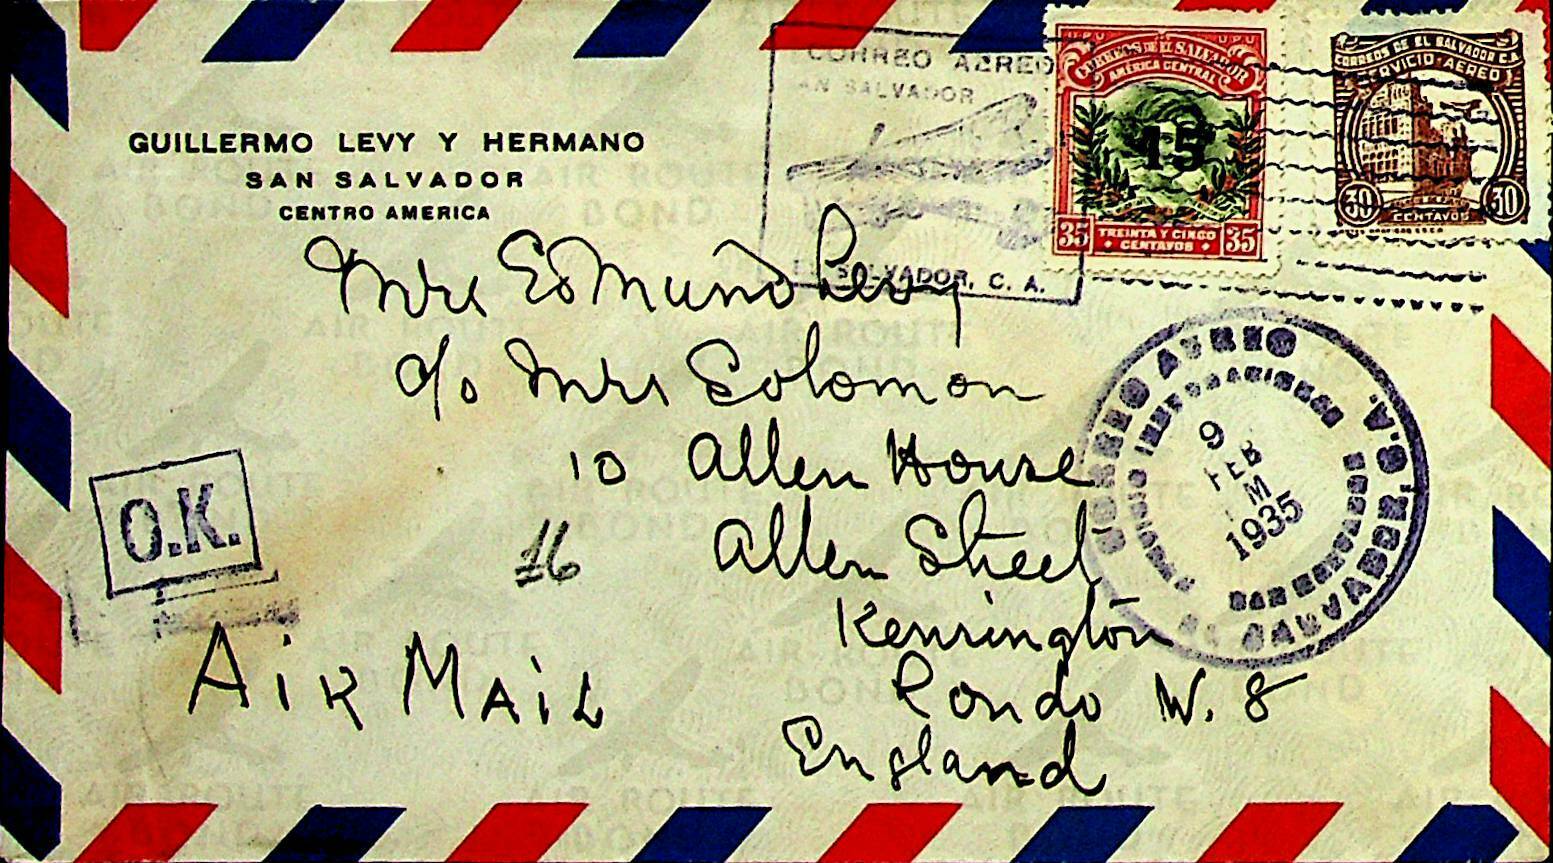 GUILLERMO LEVY Y HERMANO
SAN SALVADOR
CENTRO AMERICA
CORREO AEREO
SAN SALVADOR
EL SALVADOR, C. A.
U P U U P U
CORREOS DE EL SALVADOR
AMERICA CENTRAL
15
35 TREINTA Y CINCO CENTAVOS 35
CORREOS DE EL SALVADOR C.A.
SERVICIO AEREO
30 CENTAVOS 30
Mrs Edmund Levy
c/o Mrs Solomon
10 Allen House
Allen Street
Kensington
Londo W. 8
England
CORREO AEREO
9
FEB
M
1935
SAN SALVADOR
EL SALVADOR, C.A.
O.K.
16
AIR MAIL
AIR ROUTE
BOND